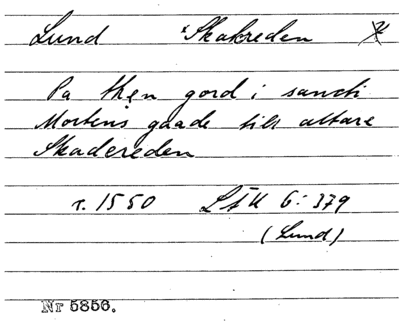 Lund *Skakreden
Pa then gord i sancti
Mortens gaade till altare
Skadereden
r. 1550 LÄU 6:379
(Lund)
Nr 5856.